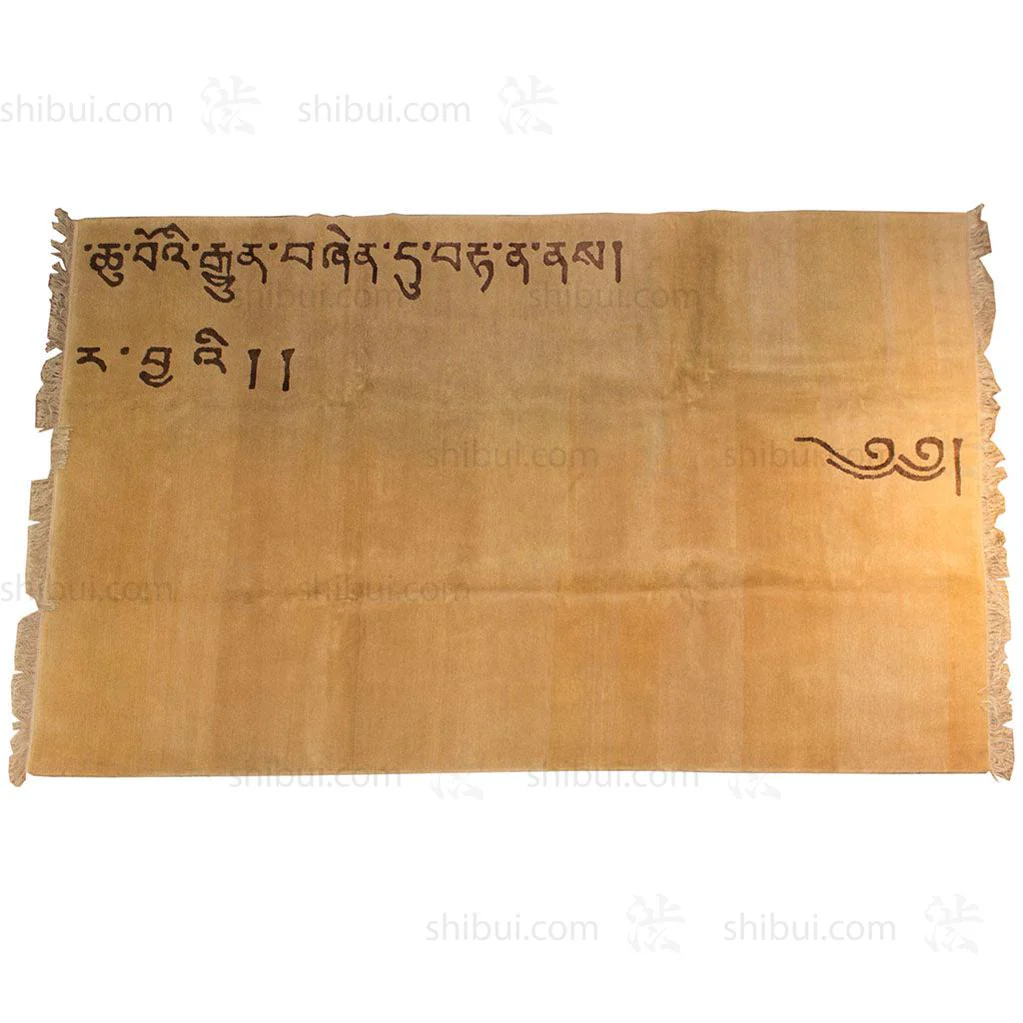 shibui.com shibui.com
་ཆུ་བོའི་རྒྱུན་བཞེན་དུ་བརྟ་ན་ནས།
shibui.com shibui.com
ར་བྱའི།།
shibui.com shibui.com
༄༅།
shibui.com shibui.com
shibui.com shibui.com
shibui.com shibui.com